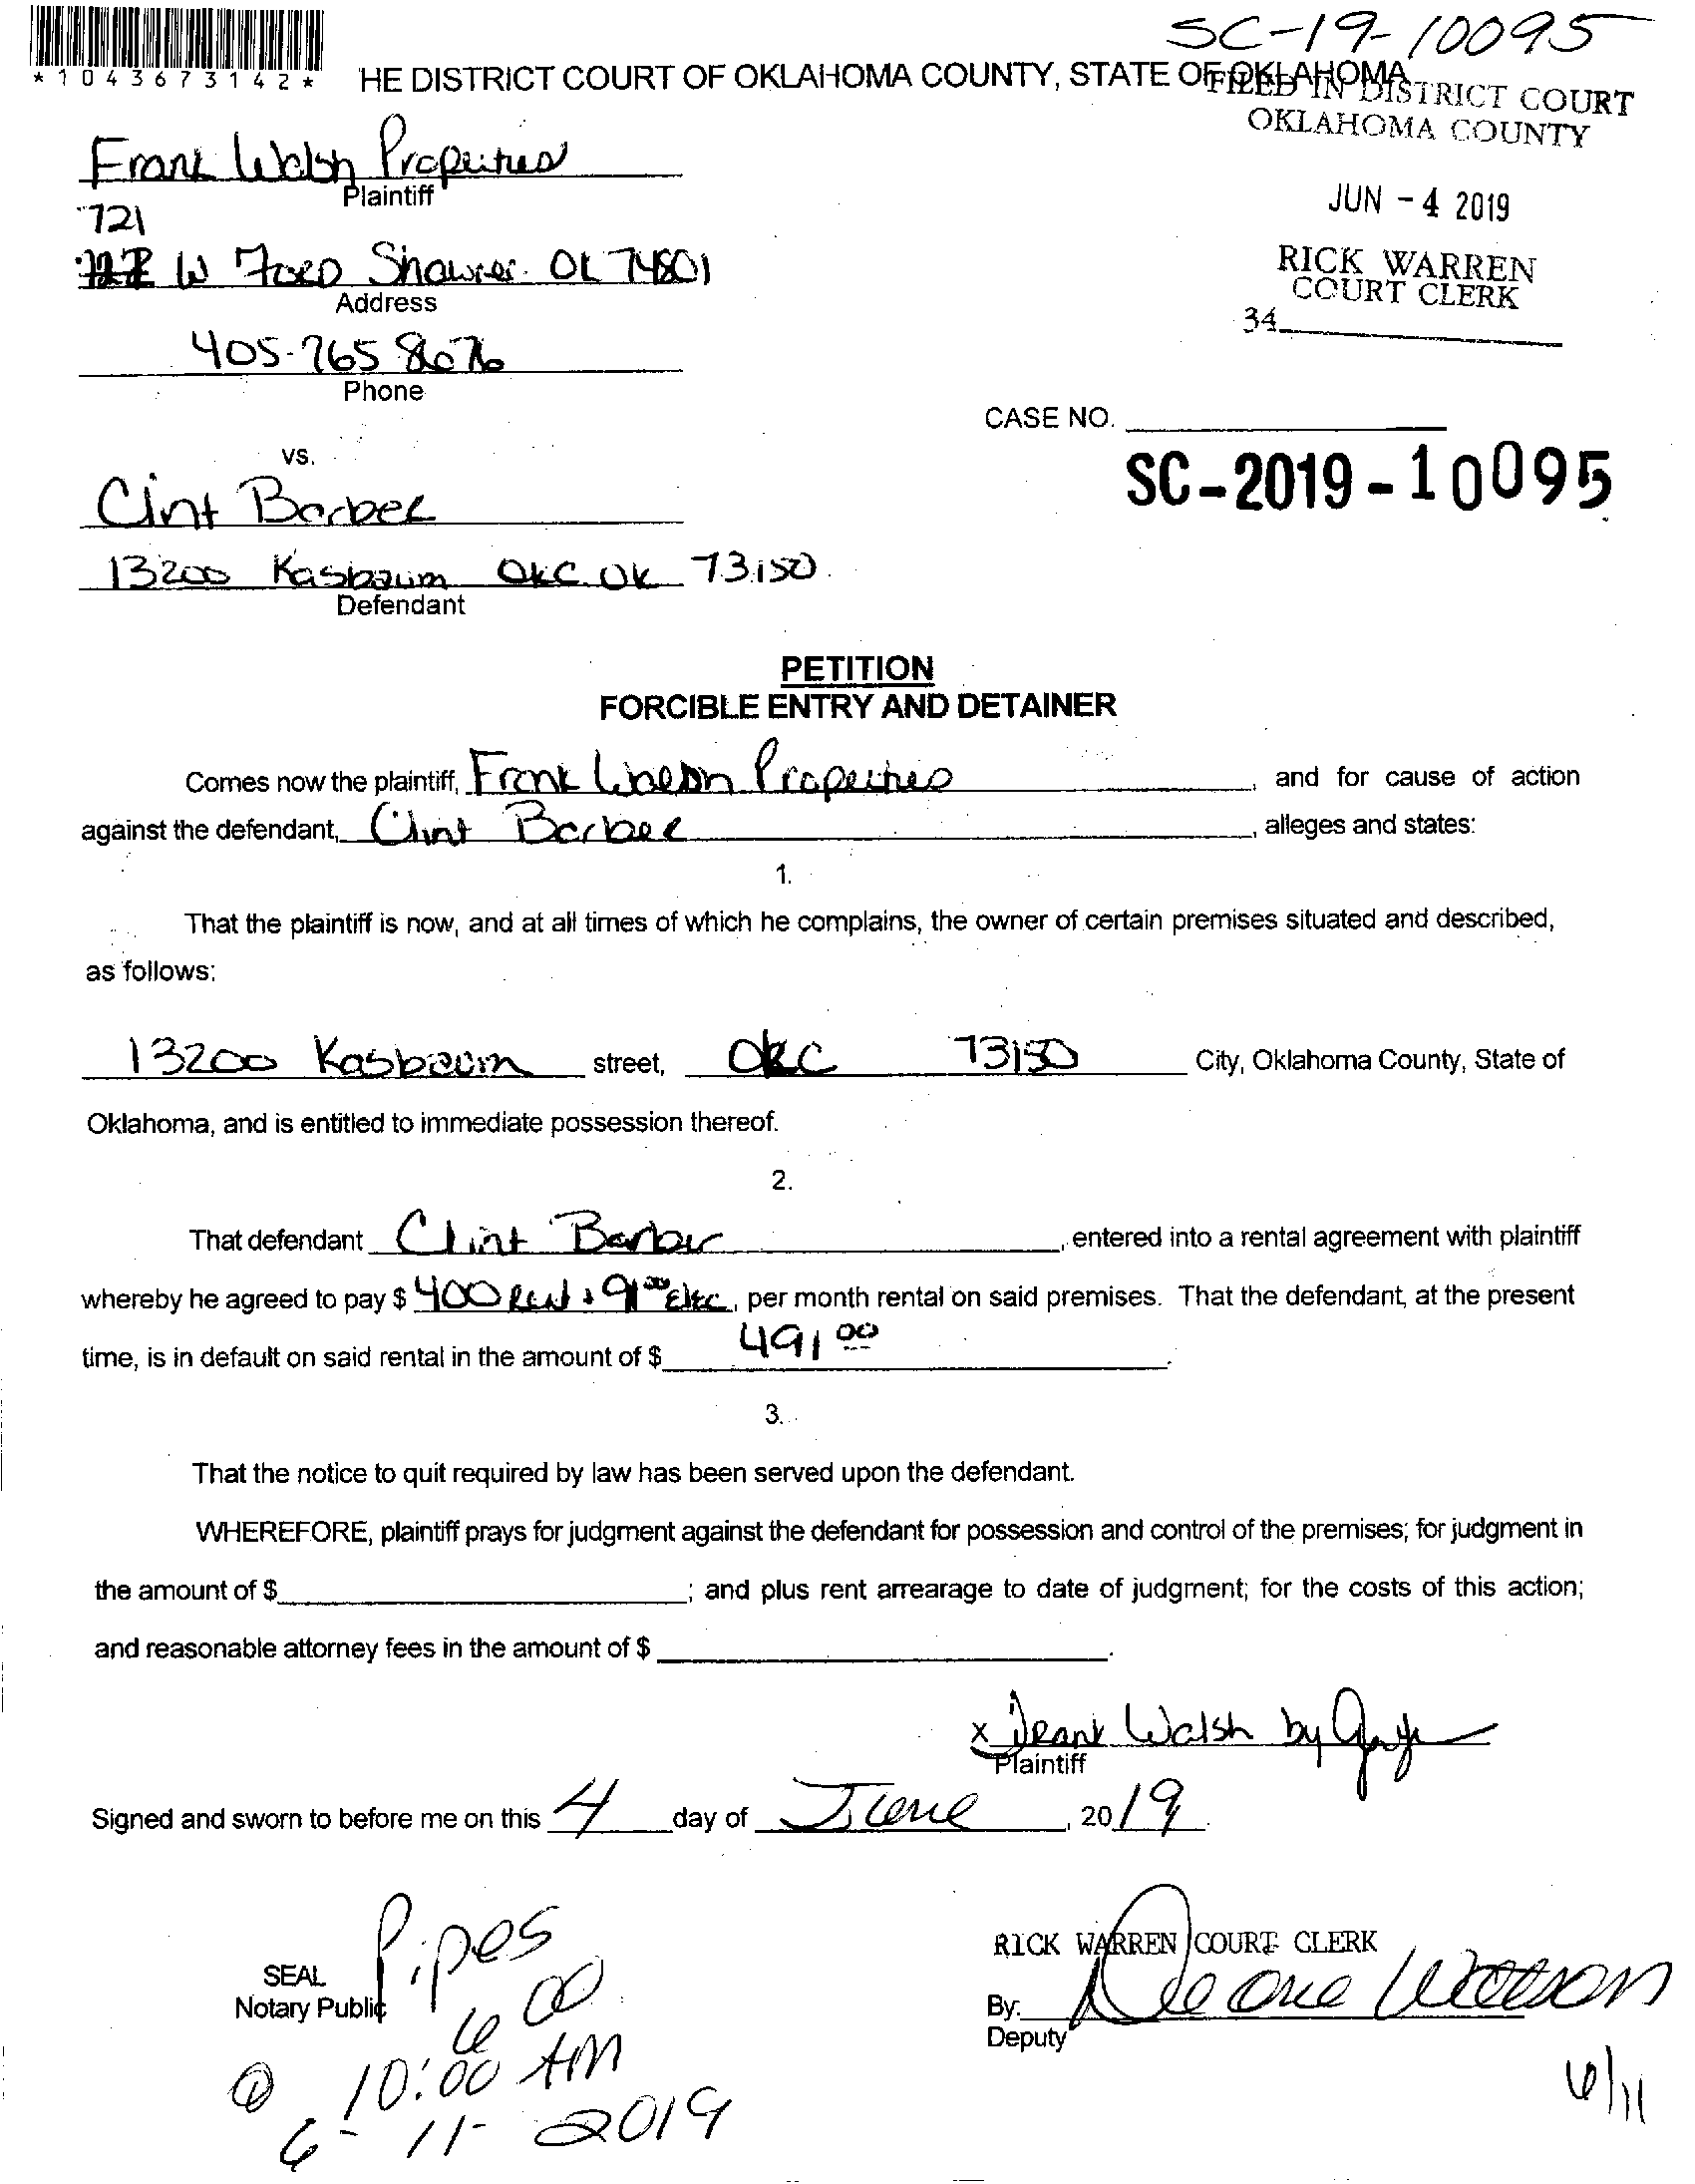 SC-19-10095
*1043673142*
HE DISTRICT COURT OF OKLAHOMA COUNTY, STATE OF OKLAHOMA
FILED IN DISTRICT COURT
OKLAHOMA COUNTY
Frank Walsh Properties
Plaintiff
JUN - 4 2019
721
W Ford Shawnee OK 74801
Address
RICK WARREN
COURT CLERK
34
405-765 8676
Phone
CASE NO.
vs.
SC-2019-10095
Clint Barbee
13200 Kasbaum OKC OK 73150
Defendant
PETITION
FORCIBLE ENTRY AND DETAINER
Comes now the plaintiff, Frank Walsh Properties, and for cause of action
against the defendant, Clint Barbee, alleges and states:
1.
That the plaintiff is now, and at all times of which he complains, the owner of certain premises situated and described,
as follows:
13200 Kasbaum street, OKC 73150 City, Oklahoma County, State of
Oklahoma, and is entitled to immediate possession thereof.
2.
That defendant Clint Barber, entered into a rental agreement with plaintiff
whereby he agreed to pay $ 400 Rent + 91 00 Elec, per month rental on said premises. That the defendant, at the present
time, is in default on said rental in the amount of $ 491 00.
3.
That the notice to quit required by law has been served upon the defendant.
WHEREFORE, plaintiff prays for judgment against the defendant for possession and control of the premises; for judgment in
the amount of $ ; and plus rent arrearage to date of judgment; for the costs of this action;
and reasonable attorney fees in the amount of $ .
x Frank Walsh by
Plaintiff
Signed and sworn to before me on this 4 day of June, 2019.
Pipes
SEAL
Notary Public
600
RICK WARREN COURT CLERK
By:
Deputy
@ 10:00 AM
6-11-2019
6/11